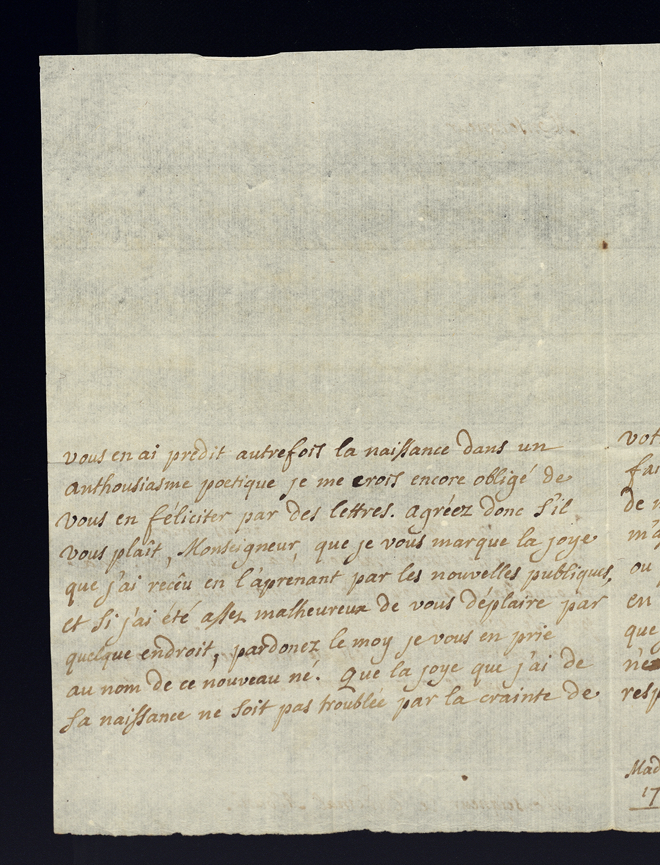 vous en ai prédit autrefois la naissance dans un
anthousiasme poetique je me crois encore obligé de
vous en féliciter par des lettres. agréez donc s'il
vous plaît, Monseigneur, que je vous marque la joye
que j'ai recêu en l'aprenant par les nouvelles publiques,
et si j'ai été assez malheureux de vous déplaire par
quelque endroit, pardonez le moy je vous en prie
au nom de ce nouveau né. Que la joye que j'ai de
sa naissance ne soit pas troublée par la crainte de
vot
fai
de n
m'a
ou p
en
que
n'e
resp
Mad
17